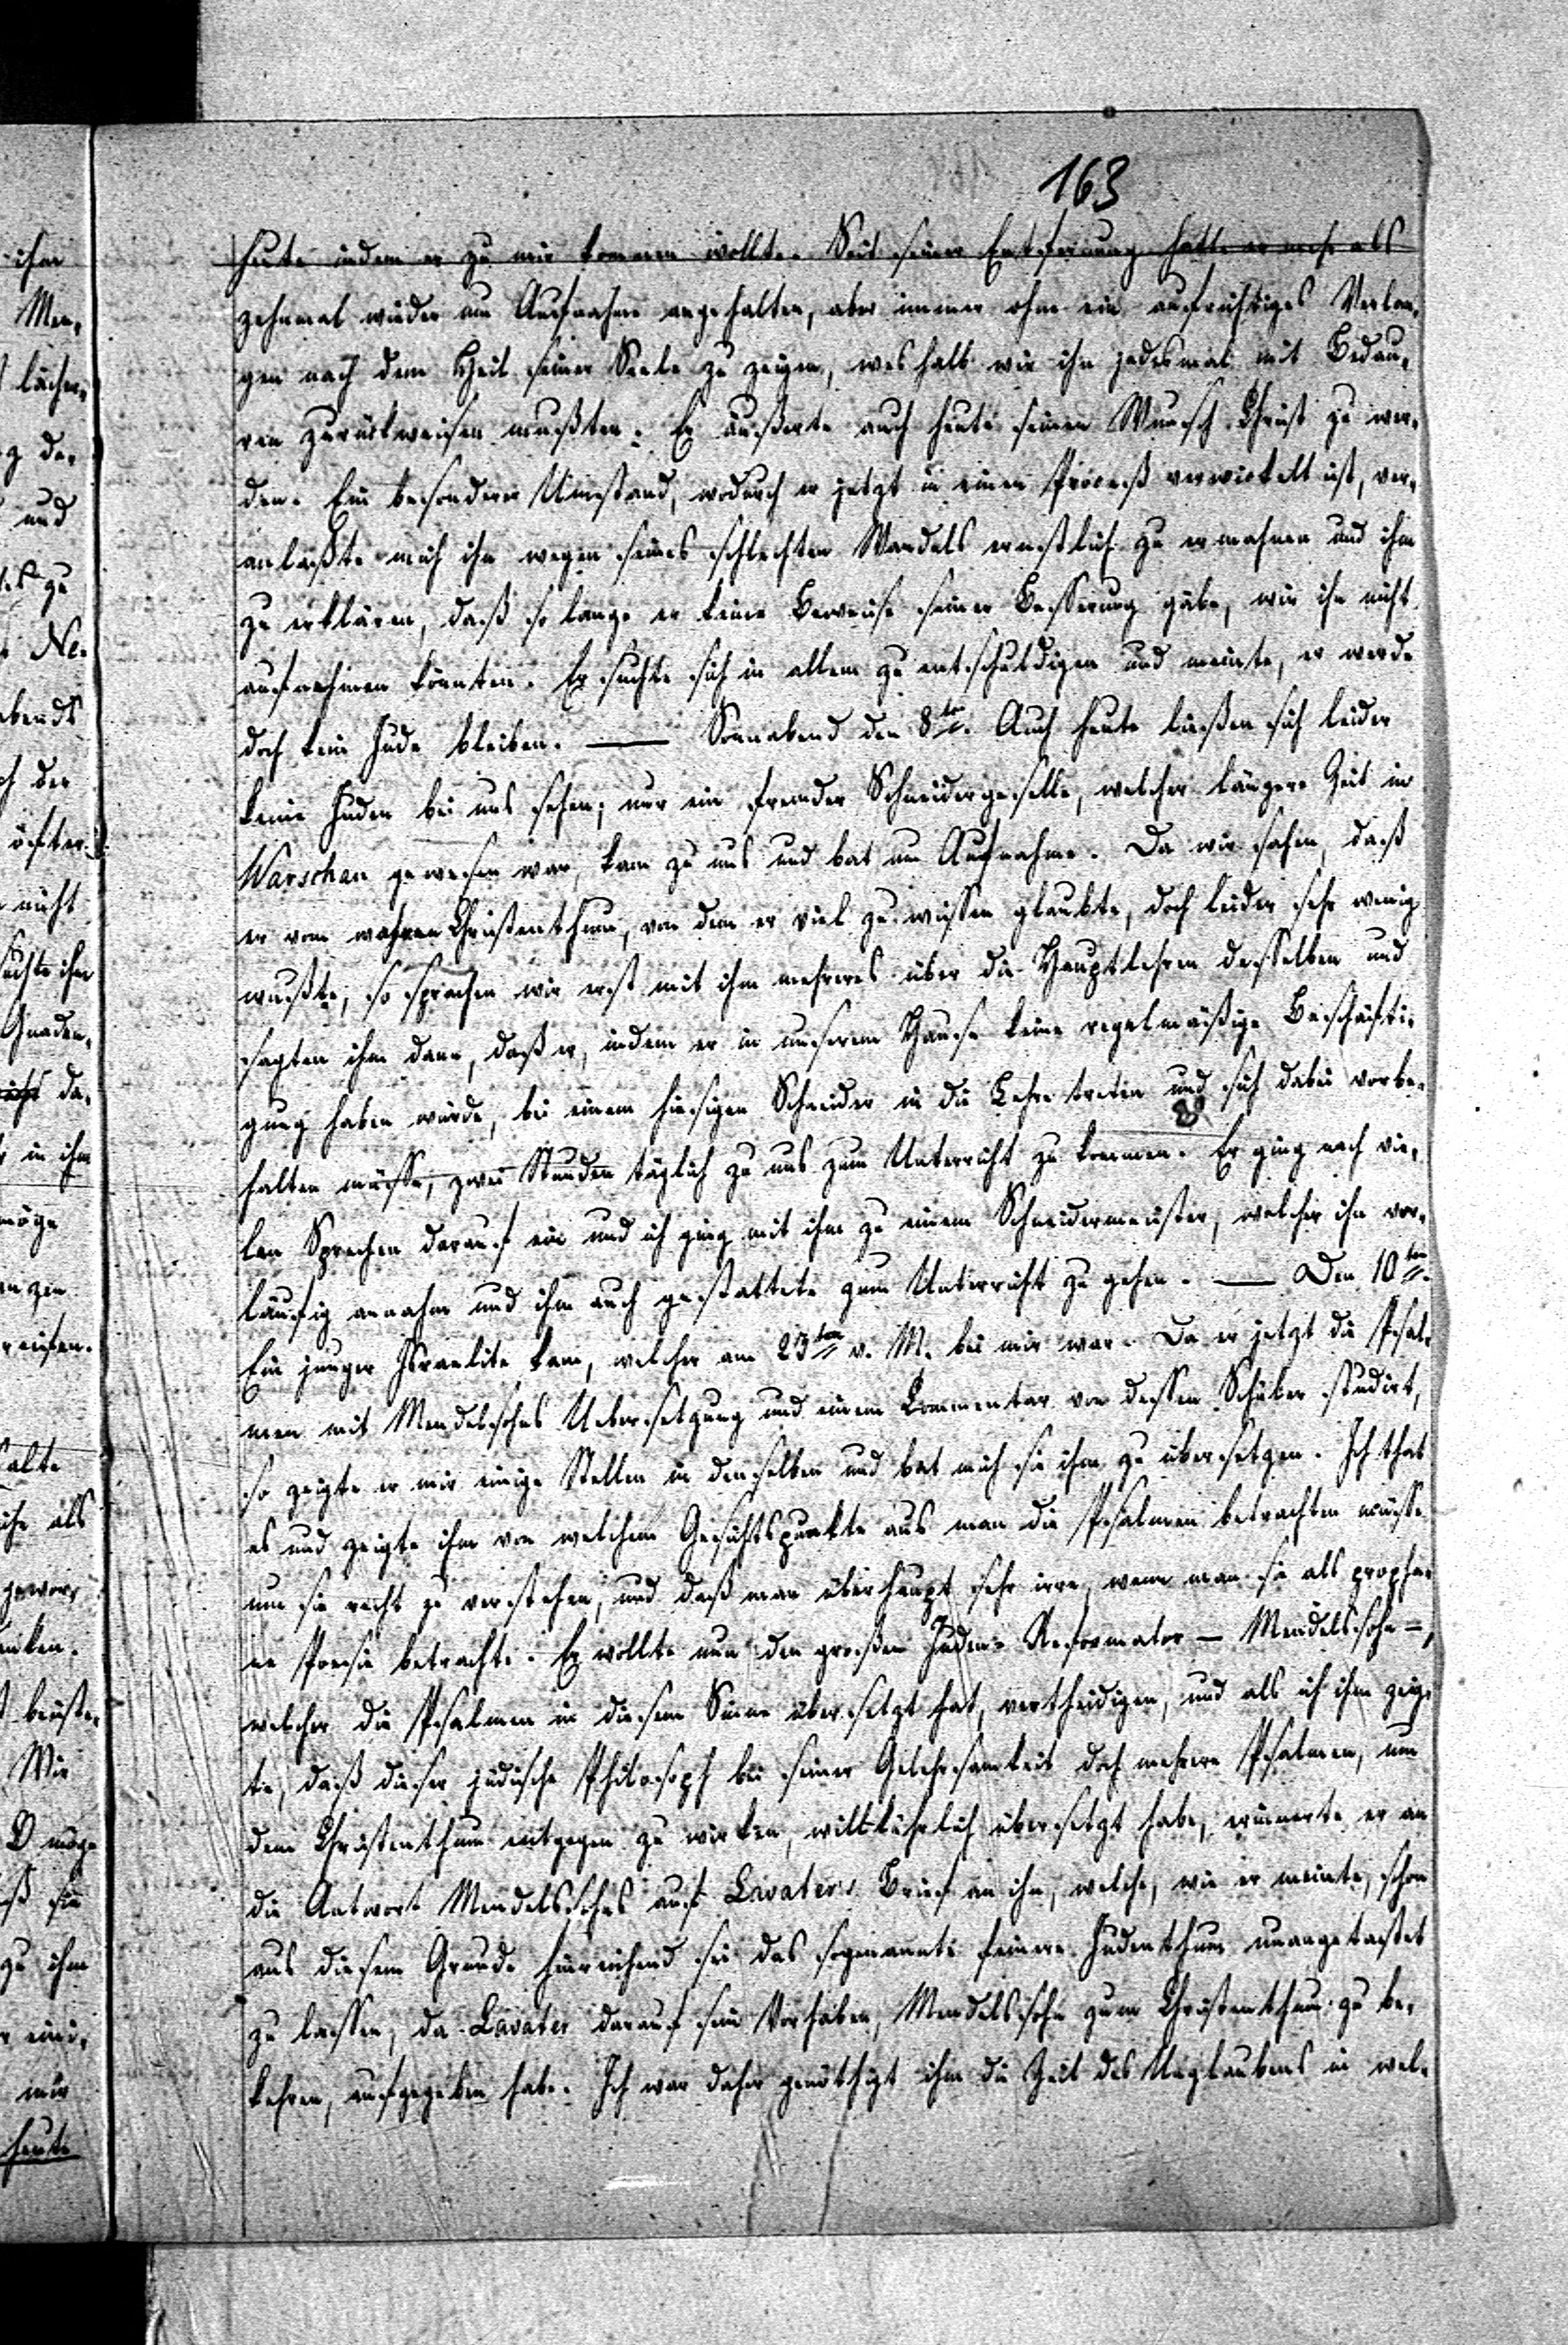 163
heute indem er zu mir kommen wollte. Seit seiner Entfernung hatte er mehr als
zehnmal wieder um Aufnahme angehalten, aber immer ohne ein aufrichtiges Verlan-
gen nach dem Heil seiner Seele zu zeigen, weshalb wir ihn jedesmal mit Bedau-
ren zurückweisen mußten. Er äußerte auch heute seinen Wunsch Christ zu wer-
den. Ein besonderer Umstand, wodurch er jetzt in einen Proceß verwickelt ist, ver-
anlaßte mich ihn wegen seines schlechten Wandels ernstlich zu ermahnen und ihm
zu erklären, daß so lange er keine Beweise seiner Besserung gäbe, wir ihn nicht
aufnehmen könnten. Er suchte sich in allem zu entschuldigen und meinte, er werde
doch kein Jude bleiben. — Sonnabend den 8ten. Auch heute ließen sich leider
keine Juden bei uns sehen; nur ein fremder Schneidergeselle, welcher längere Zeit in
Warschau gewesen war, kam zu uns und bat um Aufnahme. Da wir sahen, daß
er vom wahren Christenthum, von dem er viel zu wissen glaubte, doch leider sehr wenig
wußte, so sprachen wir erst mit ihm mehreres über die Hauptlehren desselben und
sagten ihm dann, daß er, indem er in unserem Hause keine regelmäßige Beschäfti-
gung haben würde, bei einem hiesigen Schneider in die Lehre treten und sich dabei vorbe-
halten müsse, zwei Stunden täglich zu uns zum Unterricht zu kommen. Er ging nach vie-
len Sprechen darauf ein und ich ging mit ihm zu einem Schneidermeister, welcher ihn vor-
läufig annahm und ihm auch gestattete zum Unterricht zu gehen. — Den 10ten.
Ein junger Israelite kam, welcher am 23ten v. M. bei mir war. Da er jetzt die Psal-
men mit Mendelsohns Uebersetzung und einem Commentar von dessen Schüler studirt,
so zeigte er mir einige Stellen in denselben und bat mich sie ihm zu übersetzen. Ich that
es und zeigte ihm von welchem Gesichtspunkte aus man die Psalmen betrachten müsse
um sie recht zu verstehen, und daß man überhaupt sehr irre, wenn man sie als propha-
ne Poesie betrachte. Er wollte nun den großen Juden-Reformator — Mendelssohn —,
welcher die Psalmen in diesem Sinne übersetzt hat, vertheidigen, und als ich ihm zeig-
te, daß dieser jüdische Philosoph bei seiner Gelehrsamkeit doch mehrere Psalmen, um
dem Christenthum entgegen zu wirken, willkührlich übersetzt habe, erinnerte er an
die Antwort Mendelssohns auf Lavaters Brief an ihn, welche, wie er meinte, schon
aus diesem Grunde hinreichend sei das sogenannte feinere Judenthum unangetastet
zu lassen, da Lavater darauf sein Vorhaben, Mendelssohn zum Christenthum zu be-
kehren, aufgegeben habe. Ich war daher genöthigt ihm die Zeit des Unglaubens in wel-